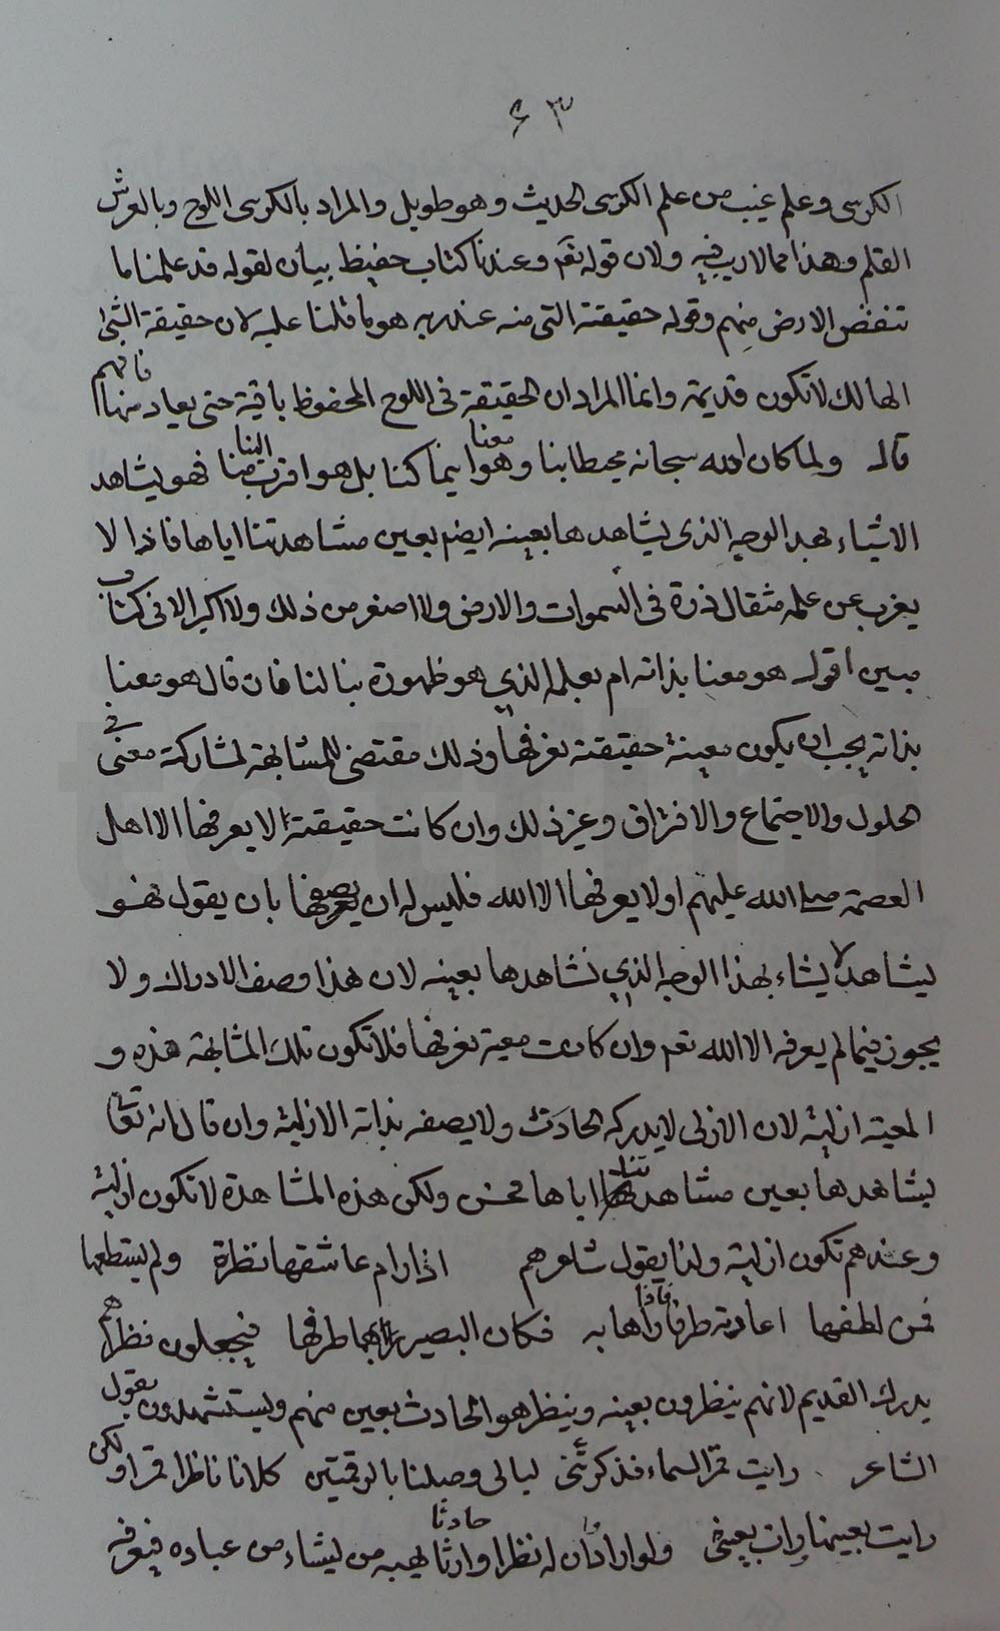 ۶۳
الكرسى وعلم غيب من علم الكرسى الحديث وهو طويل والمراد بالكرسى اللوح وبالعرش
القلم وهذا مما لا ريب فيه ولان قوله تعم وعندنا كتاب حفيظ بيان لقوله قد علمنا ما
تنقص الارض منهم وقوله حقيقته التى منه عند ربه هو ما قلنا عليه لان حقيقة الشئ
الهالك لا تكون قديمة وانما المراد ان الحقيقة فى اللوح المحفوظ باقية حتى يعاد منها فافهم
قال ولما كان الله سبحانه محيطا بنا وهو معنا اينما كنا بل هو اقرب الينا منا فهو يشاهد
الاشياء بهذا الوجه الذى يشاهدها بعينه ايضم بعين مشاهدتنا اياها فاذا لا
يعزب عن علمه مثقال ذرة فى السموات والارض ولا اصغر من ذلك ولا اكبر الا فى كتاب
مبين اقول هو معنا بذاته ام بعلمه الذي هو ظهوره بنا لنا فان قال هو معنا
بذاته يجب ان يكون معيته حقيقته نعرفها وذلك مقتضى للمشابهة لمشاركته معنى فى
الحلول والاجتماع والافتراق وغير ذلك وان كانت حقيقته لا يعرفها الا اهل
العصمة صلى الله عليهم او لا يعرفها الا الله فليس له ان يصفها بان يقول فهو
يشاهد الاشياء بهذا الوجه الذي نشاهدها بعينه لان هذا وصف الادراك ولا
يجوز فيما لم يعرفه الا الله تعم وان كانت معية نعرفها فلا تكون تلك المشابهة هذه و
المعية ازلية لان الازلى لا يدركه الحادث ولا يصفه بذاته الازلية وان قال انه تعالى
يشاهدها بعين مشاهدتنا اياها فحسن ولكن هذه المشاهدة لا تكون ازلية
وعندهم تكون ازلية ولذا يقول شاعرهم اذا رام عاشقها نظرة ولم يستطعها
فمن لطفها اعارته طرفا رآها به فكان البصير بها طرفها فيجعلون نظرهم
يدرك القديم لانهم ينظرون بعينه وينظر هو الحادث بعين منهم ويستشهدون بقول
الشاعر رايت قمر السماء فذكرتنى ليالى وصلنا بالرقمتين كلانا ناظر قمرا ولكن
رايت بعينها وات بعينى ولو اراد ان له نظرا حادثا يهبه من يشاء من عباده فيعرفه